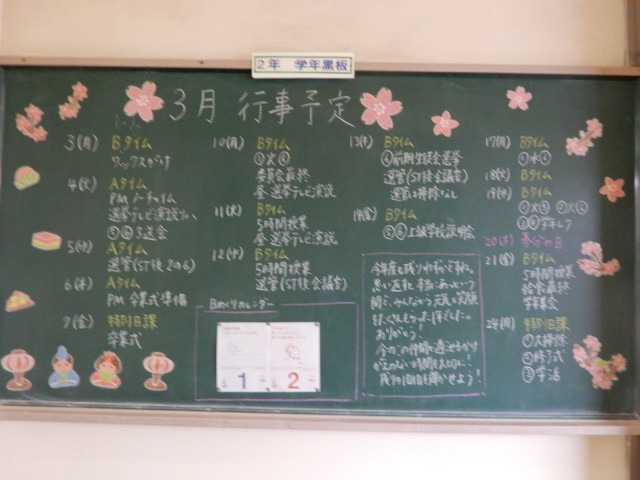 2年 学年黒板
3月 行事予定
3(月) Bタイム
ワックスがけ
4(火) Aタイム
PM ノーチャイム
選挙テレビ演説
5(水) Aタイム
選管(ST後 2の6)
6(木) Aタイム
PM 卒業式準備
7(金) 特別日課
卒業式
10(月) Bタイム
委員会最終
昼 選挙テレビ演説
11(火) Bタイム
5時間授業
昼 選挙テレビ演説
12(水) Bタイム
5時間授業
選管(ST後会議室)
日めくりカレンダー
1
2
13(木) Bタイム
⑥前期生徒会選挙
選管(ST後会議室)
選管は掃除なし
14(金) Bタイム
⑤⑥上級学校説明会
今年度も残りわずかですね。
思い返すと本当にあっという
間で、みんなのつ元気と笑顔
ありがとう!
今のこの仲間と過ごせるかけ
がえのない時間を大切に!
残り11日間を輝かせよう!
17(月) Bタイム
18(火) Bタイム
19(水) Bタイム
20(木) 春分の日
21(金) Bタイム
5時間授業
給食最終
学年集会
24(月) 特別日課
①大掃除
②修了式
③学活